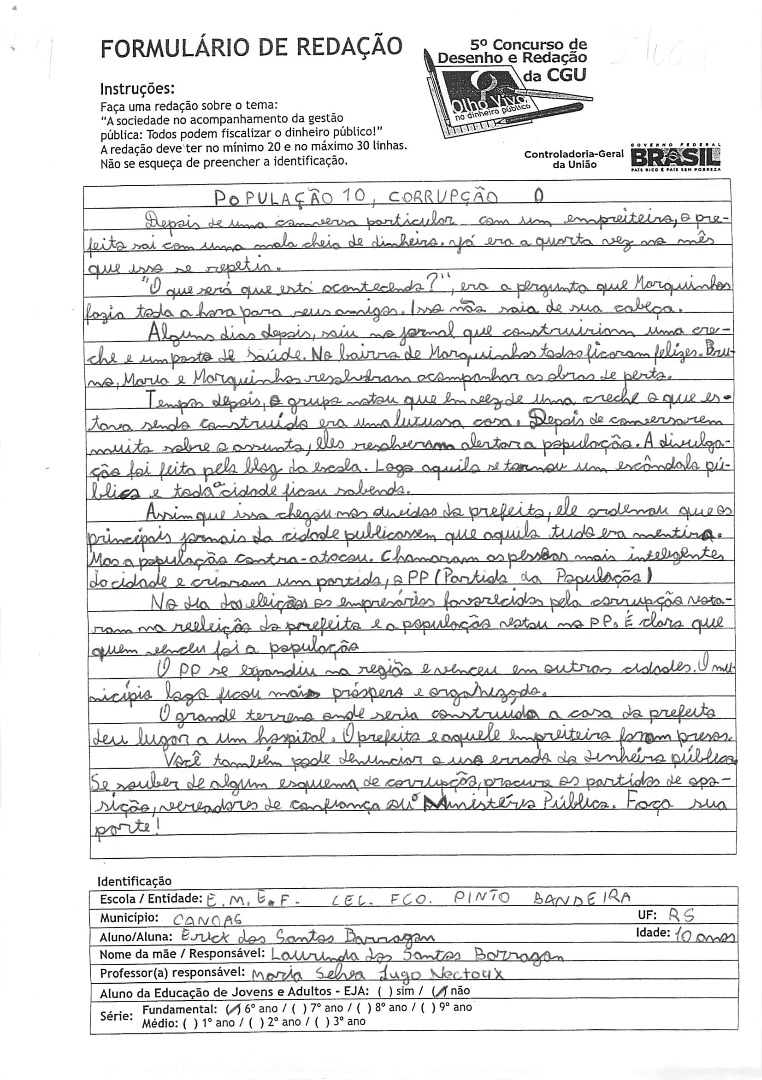 FORMULÁRIO DE REDAÇÃO
5º Concurso de
Desenho e Redação
da CGU
Olho Vivo
no dinheiro público
Instruções:
Faça uma redação sobre o tema:
"A sociedade no acompanhamento da gestão
pública: Todos podem fiscalizar o dinheiro público!"
A redação deve ter no mínimo 20 e no máximo 30 linhas.
Não se esqueça de preencher a identificação.
Controladoria-Geral
da União
GOVERNO FEDERAL
BRASIL
PAÍS RICO É PAÍS SEM POBREZA
POPULAÇÃO 10, CORRUPÇÃO 0
Depois de uma conversa particular com um empreiteiro, o pre-
feito sai com uma mala cheia de dinheiro. Já era a quarta vez no mês
que isso se repetia.
"O que será que está acontecendo?", era a pergunta que Marquinhos
fazia toda a hora para seus amigos. Isso não saia de sua cabeça.
Alguns dias depois, saiu no jornal que construiriam uma cre-
che e um posto de saúde. No bairro de Marquinhos todos ficaram felizes. Bru-
no, Maria e Marquinhos resolveram acompanhar as obras de perto.
Tempo depois, o grupo notou que em vez de uma creche o que es-
tava sendo construído era uma lutuosa casa. Depois de conversarem
muito sobre o assunto, eles resolveram alertar a população. A divulga-
ção foi feita pelo blog da escola. Logo aquilo se tornou um escândalo pú-
blico e toda a cidade ficou sabendo.
Assim que isso chegou nos ouvidos do prefeito, ele ordenou que os
principais jornais da cidade publicassem que aquilo tudo era mentira.
Mas a população contra-atacou. Chamaram as pessoas mais inteligentes
da cidade e criaram um partido, o PP (Partido da População)
No dia das eleições os empresários favorecidos pela corrupção vota-
ram na reeleição do prefeito e a população votou no PP. É claro que
quem venceu foi a população
O PP se expandiu na região e venceu em outras cidades. O mu-
nicípio logo ficou mais próspero e organizado.
O grande terreno onde seria construída a casa do prefeito
deu lugar a um hospital. O prefeito e aquele empreiteiro foram presos.
Você também pode denunciar o uso errado do dinheiro público.
Se souber de algum esquema de corrupção, procure os partidos de opo-
sição, vereadores de confiança ou o Ministério Público. Faça sua
parte!
Identificação
Escola / Entidade: E.M.E.F. CEL. FCO. PINTO BANDEIRA
Município: CANOAS UF: RS
Aluno/Aluna: Erick dos Santos Barragan Idade: 10 anos
Nome da mãe / Responsável: Laurinda dos Santos Barragan
Professor(a) responsável: Maria Selva Lugo Nectoux
Aluno da Educação de Jovens e Adultos - EJA: ( ) sim / (/) não
Série: Fundamental: (/) 6º ano / ( ) 7º ano / ( ) 8º ano / ( ) 9º ano
Médio: ( ) 1º ano / ( ) 2º ano / ( ) 3º ano